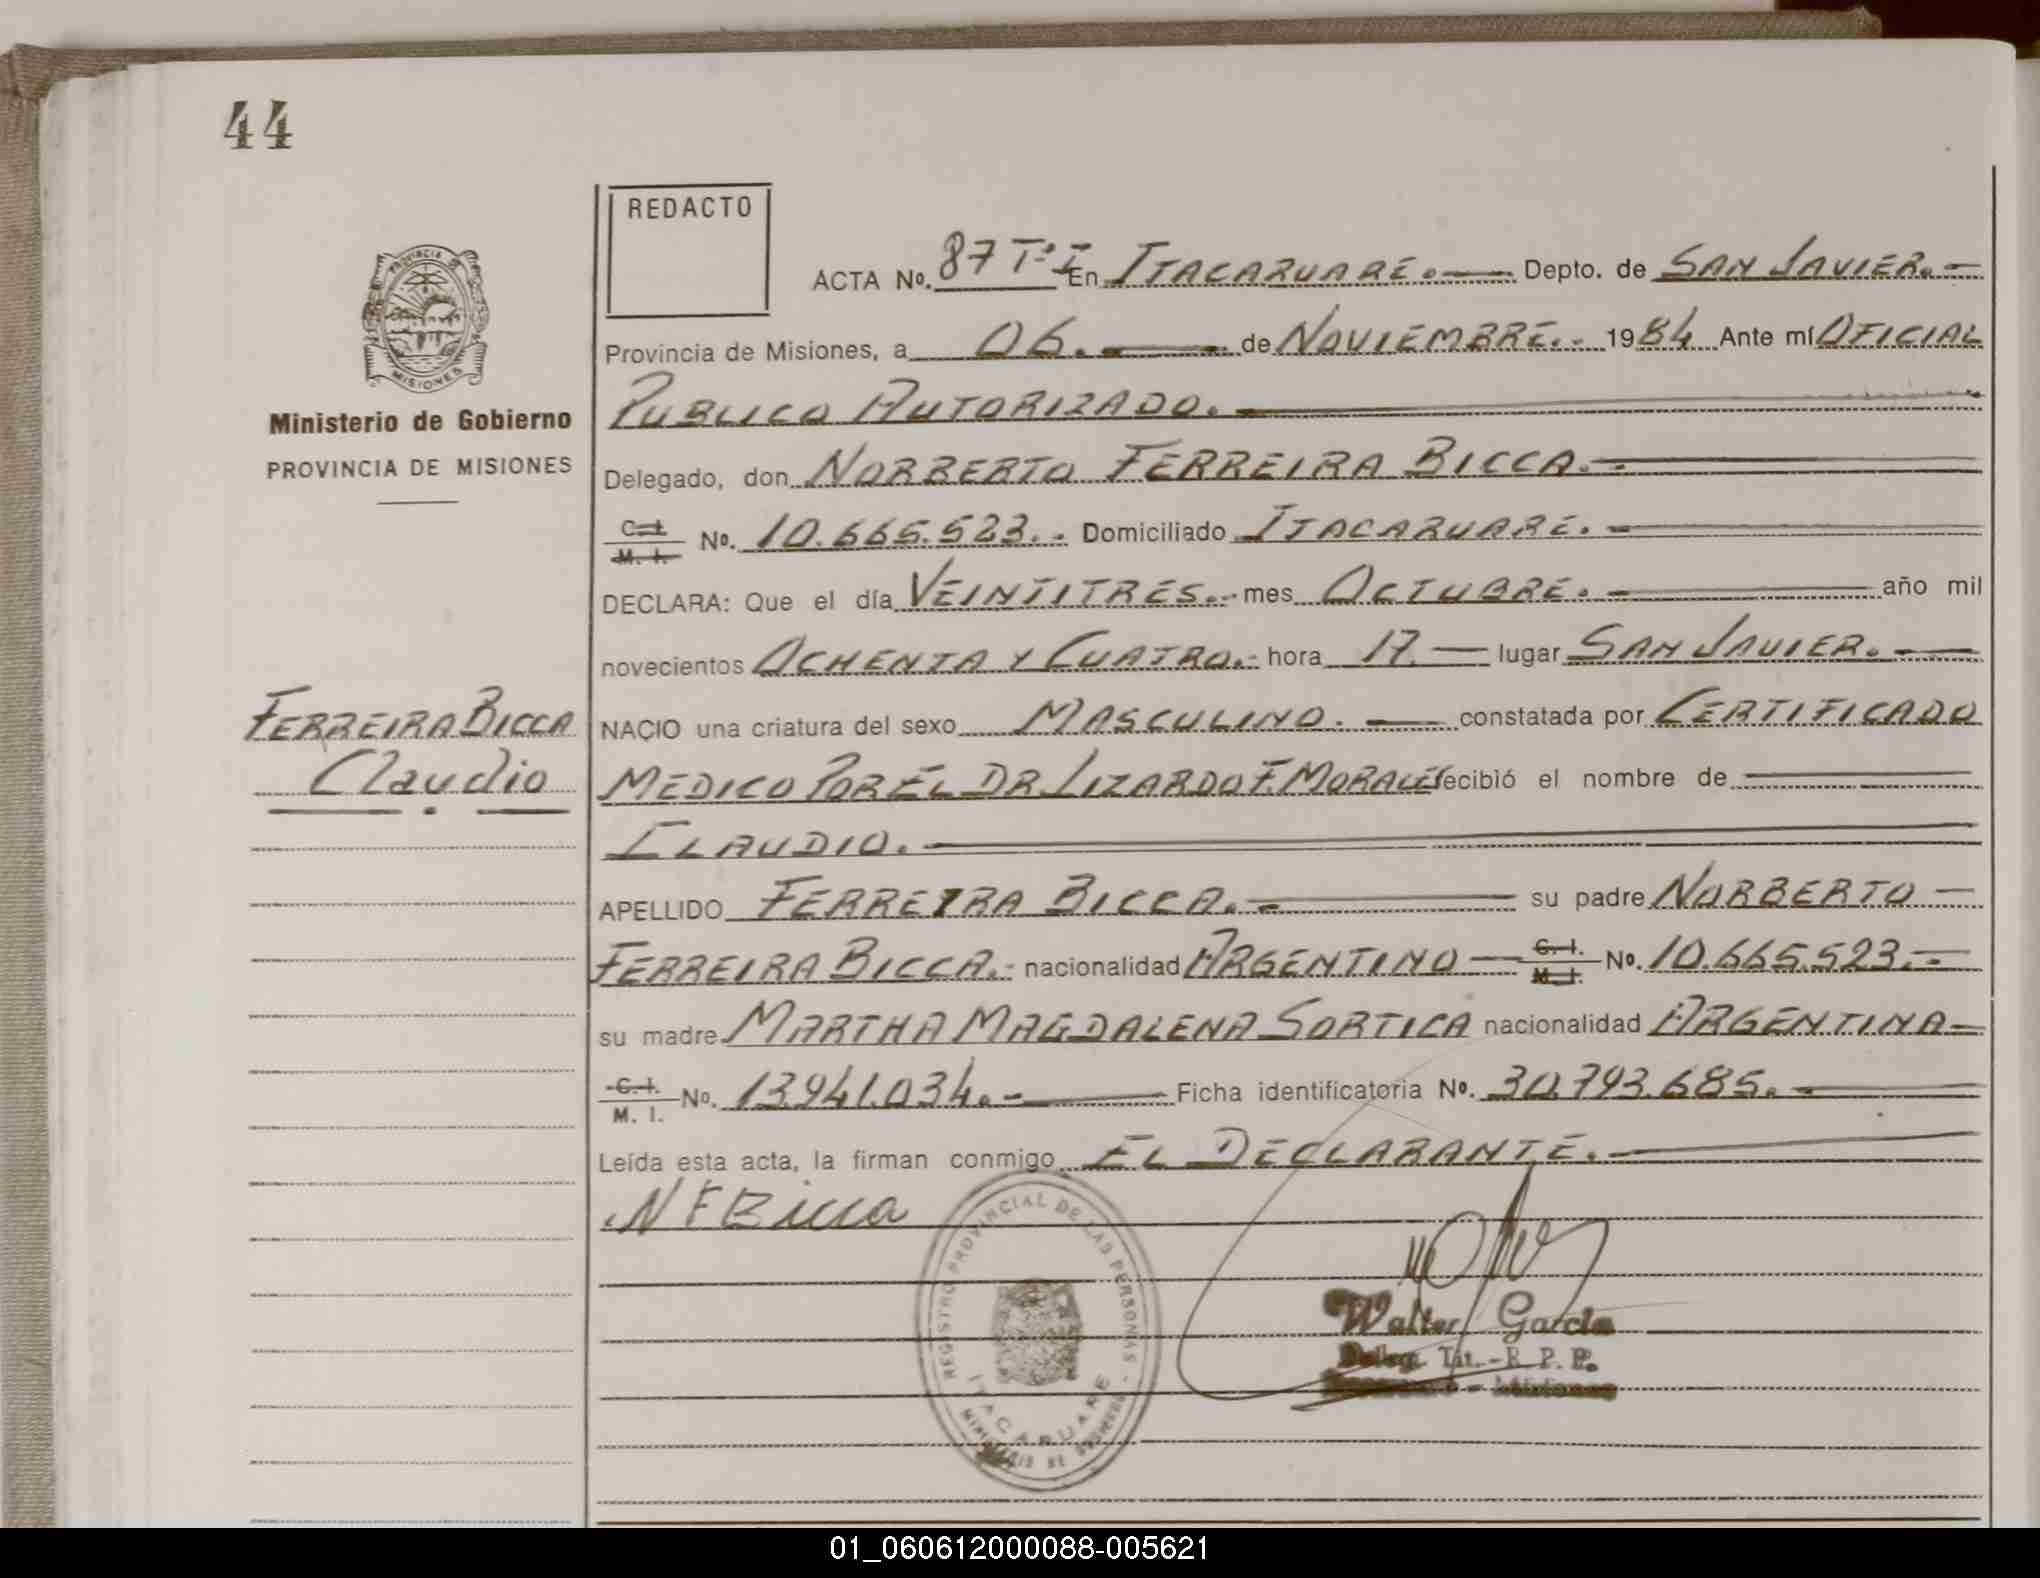 44
REDACTO
ACTA Nº. 87 Tº I En ITACARUARE.- Depto. de SAN JAVIER.-
Provincia de Misiones, a 06.- de NOVIEMBRE.- 1984 Ante mí OFICIAL
PUBLICO AUTORIZADO.-
Delegado, don NORBERTO FERREIRA BICCA.-
C. I.
M. I.
Nº. 10.665.523.- Domiciliado ITACARUARE.-
DECLARA: Que el día VEINTITRES.- mes OCTUBRE.- año mil
novecientos OCHENTA Y CUATRO.- hora 17.- lugar SAN JAVIER.-
NACIO una criatura del sexo MASCULINO.- constatada por CERTIFICADO
MEDICO POR EL DR. LIZARDO F. MORALES recibió el nombre de
CLAUDIO.-
APELLIDO FERREIRA BICCA.- su padre NORBERTO-
FERREIRA BICCA.- nacionalidad ARGENTINO- C. I. M. I. Nº. 10.665.523.-
su madre MARTHA MAGDALENA SORTICA nacionalidad ARGENTINA-
C. I.
M. I.
Nº. 13.941.034.- Ficha identificatoria Nº. 30.793.685.-
Leída esta acta, la firman conmigo EL DECLARANTE.-
N F Bicca
PROVINCIA DE
MISIONES
Ministerio de Gobierno
PROVINCIA DE MISIONES
FERREIRA BICCA
Claudio
REGISTRO PROVINCIAL DE LAS PERSONAS
ITACARUARE
MINISTERIO DE GOBIERNO
Walter García
Deleg. Tit.-R. P. P.
Misiones
01_060612000088-005621